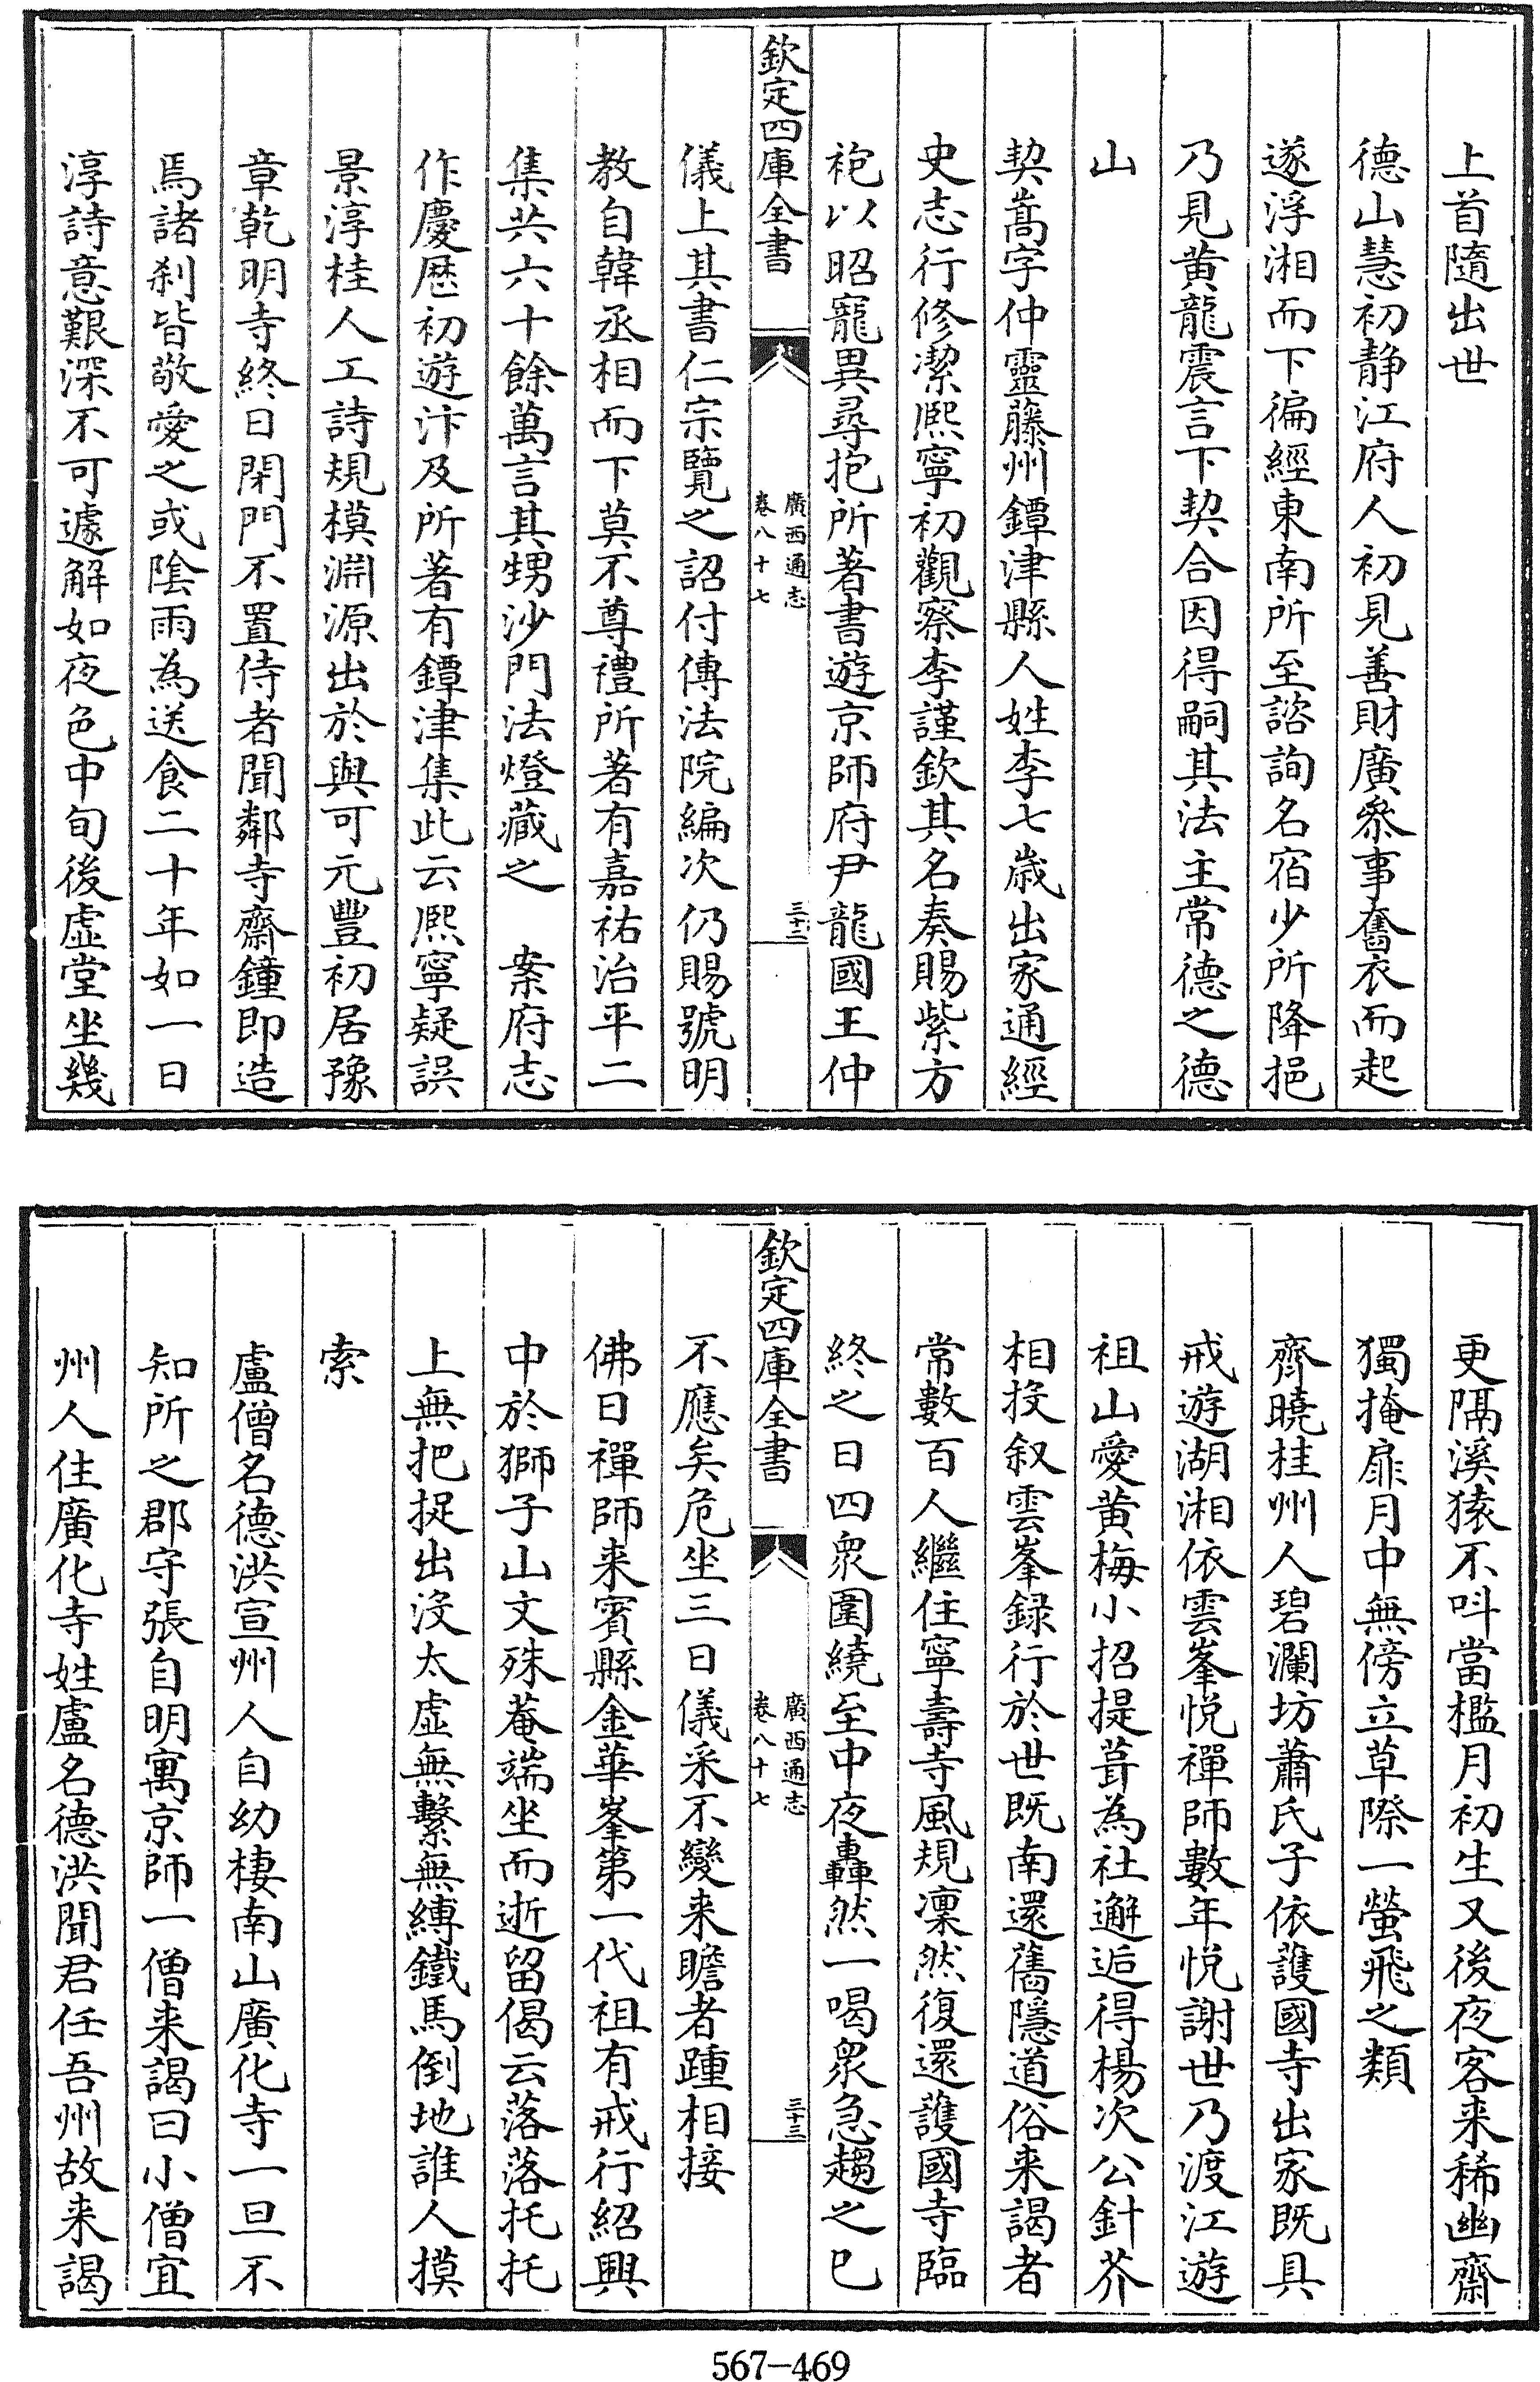 上首隨出世
德山慧初静江府人初見善財廣叅事奮衣而起
遂浮湘而下徧經東南所至諮詢名宿少所降挹
乃見黄龍震言下契合因得嗣其法主常德之德
山
契嵩字仲靈藤州鐔津縣人姓李七歲出家通經
史志行修潔熙寧初觀察李謹欽其名奏賜紫方
袍以昭寵異尋抱所著書遊京師府尹龍國王仲
欽定四庫全書
廣西通志
卷八十七
三十二
儀上其書仁宗覽之詔付傳法院編次仍賜號明
教自韓丞相而下莫不尊禮所著有嘉祐治平二
集共六十餘萬言其甥沙門法燈藏之 案府志
作慶歴初遊汴及所著有鐔津集此云熙寧疑誤
景淳桂人工詩規模淵源出於與可元豐初居豫
章乾明寺終日閉門不置侍者聞鄰寺齋鐘即造
焉諸刹皆敬愛之或陰雨為送食二十年如一日
淳詩意艱深不可遽解如夜色中旬後虛堂坐幾
更隔溪猿不叫當檻月初生又後夜客来稀幽齋
獨掩扉月中無傍立草際一螢飛之類
齊曉桂州人碧瀾坊蕭氏子依護國寺出家既具
戒遊湖湘依雲峯悦禪師數年悦謝世乃渡江遊
祖山愛黄梅小招提葺為社邂逅得楊次公針芥
相投叙雲峯録行於世既南還舊隱道俗来謁者
常數百人繼住寧壽寺風規凜然復還護國寺臨
終之日四衆圍繞至中夜轟然一喝衆急趨之已
欽定四庫全書
廣西通志
卷八十七
三十三
不應矣危坐三日儀采不變来瞻者踵相接
佛日禪師来賓縣金華峯第一代祖有戒行紹興
中於獅子山文殊菴端坐而逝留偈云落落托托
上無把捉出沒太虛無繫無縛鐵馬倒地誰人摸
索
盧僧名德洪宣州人自幼棲南山廣化寺一旦不
知所之郡守張自明寓京師一僧来謁曰小僧宜
州人住廣化寺姓盧名德洪聞君任吾州故来謁
567-469